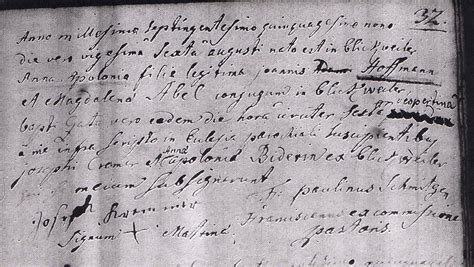 37.
Anno millesimo Septingentesimo quinquagesimo nono
die vero vigesima Sexta augusti nata est in blickweiler
Anna Apolonia filia legitima joannis Hoffmann
et Magdalena Abel conjugum in blickweiler
bapt. vero eadem die hora circiter Sexta vespertina
a me infra Scripto in Eclesia parochiali Suscipientibus
josepho Cremer et Anna apolonia Biderin ex blickweiler
mecum Subsignerunt
Fr. paulinus Schmitzen
Joseph Kremmer Franciscanus ex commissione
Signum + Matrinæ pastoris.